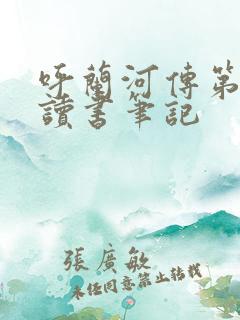 呼蘭河傳第
讀書筆記
張廣敏
未經同意禁止轉載